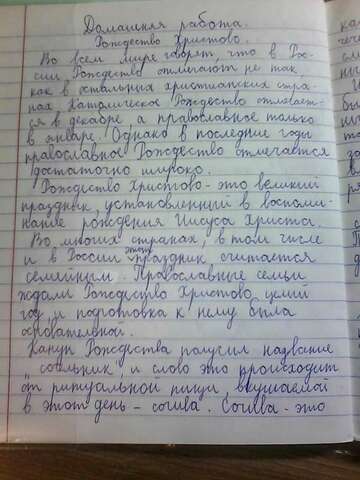 Домашняя работа.
Рождество Христово.
Во всем мире говорят, что в Рос-
сии Рождество отмечают не так,
как в остальных христианских стра-
нах. Католическое Рождество отмечает-
ся в декабре, а православное только
в январе. Однако в последние годы
православное Рождество отмечается
достаточно широко.
Рождество Христово - это великий
праздник, установленный в воспоми-
нание рождения Иисуса Христа.
Во многих странах, в том числе
и в России этот праздник считается
семейным. Православные семьи
ждали Рождество Христово целый
год, и подготовка к нему была
основательной.
Канун Рождества получил название
"сочельник", и слово это происходит
от ритуальной пищи, вкушаемой
в этот день - сочива. Сочива - это